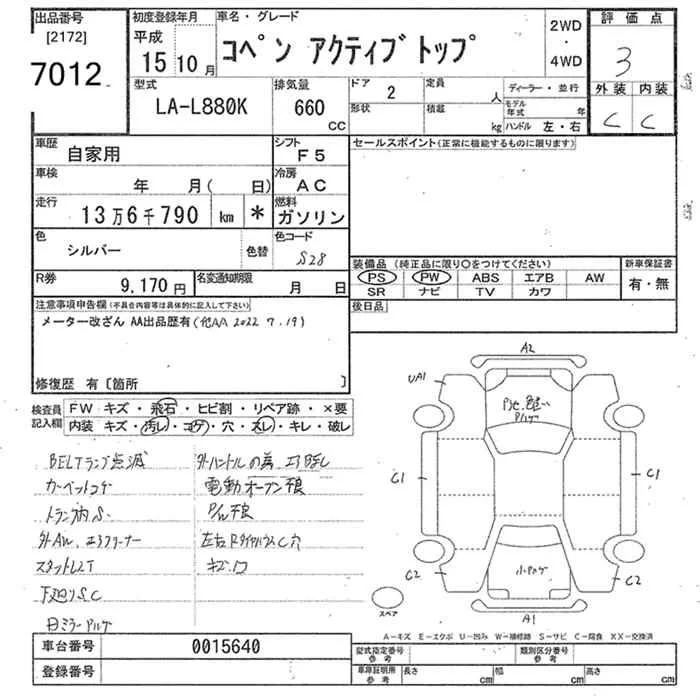 出品番号
[2172]
7012
初度登録年月
平成
15 10月
車名・グレード
コペン アクティブトップ
2WD
・
4WD
評価点
3
外装 内装
C C
型式
LA-L880K
排気量
660
CC
ドア
2
定員
人
ディーラー・並行
形状
積載
kg
モデル年式 年
ハンドル 左・右
車歴
自家用
シフト
F5
セールスポイント(正常に機能するものに限ります)
車検
年 月( 日)
冷房
AC
走行
13万6千790 km *
燃料
ガソリン
色
シルバー
色替
色コード
S28
装備品 (純正品に限り○をつけてください)
PS PW ABS エアB AW
SR ナビ TV カワ
新車保証書
有・無
R券
9,170円
名変通知期限
月 日
後日品
注意事項申告欄(不具合内容等は具体的に記入して下さい)
メーター改ざん AA出品歴有(他AA 2022 7.19)
修復歴 有〔箇所 〕
検査員記入欄
FW キズ・飛石・ヒビ割・リペア跡・×要
内装 キズ・汚レ・コゲ・穴・スレ・キレ・破レ
BELTランプ点滅
カーペットコゲ
トランク内S.
外AW. エアクリーナー
スタットレスT
下廻りS.C
日ミラーハゲ
電動オープン不良
P/W不良
キズ.凹
A2
UA1
C1
C1
C2
C2
A1
スペア
A－キズ E－エクボ U－凹み W－補修跡 S－サビ C－腐食 XX－交換済
車台番号
0015640
登録番号
型式指定番号
参考
類別区分番号
参考
車庫証明用
参考
長さ cm
幅 cm
高さ cm